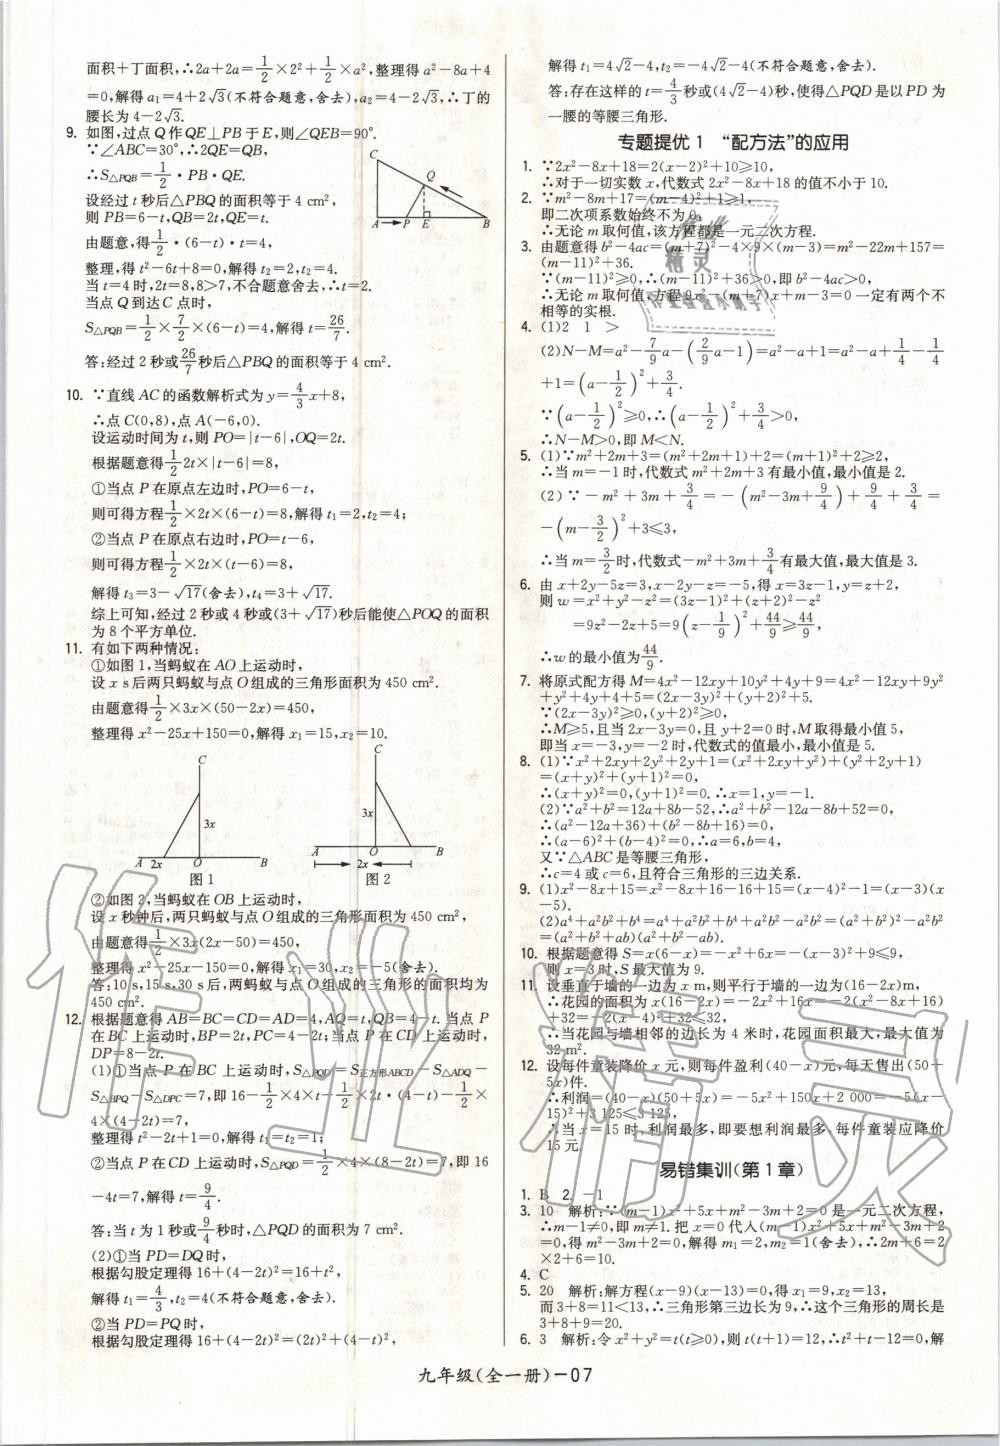 面积+丁面积,∴2a+2a=1/2×2²+1/2×a²,整理得 a²-8a+4
=0,解得 a₁=4+2√3(不符合题意,舍去),a₂=4-2√3,∴丁的
腰长为 4-2√3.
9. 如图,过点 Q 作 QE⊥PB 于 E,则∠QEB=90°.
∵∠ABC=30°,∴2QE=QB,
∴S△PQB=1/2·PB·QE.
设经过 t 秒后△PBQ 的面积等于 4 cm²,
则 PB=6-t,QB=2t,QE=t.
由题意,得1/2·(6-t)·t=4,
整理,得 t²-6t+8=0,解得 t₁=2,t₂=4.
当 t=4 时,2t=8,8>7,不合题意舍去,∴t=2.
当点 Q 到达 C 点时,
S△PQB=1/2×7/2×(6-t)=4,解得 t=26/7.
答:经过 2 秒或26/7秒后△PBQ 的面积等于 4 cm².
C
Q
A
P
E
B
10. ∵直线 AC 的函数解析式为 y=4/3x+8,
∴点 C(0,8),点 A(-6,0).
设运动时间为 t,则 PO=|t-6|,OQ=2t.
根据题意得1/2·2t×|t-6|=8,
①当点 P 在原点左边时,PO=6-t,
则可得方程1/2×2t×(6-t)=8,解得 t₁=2,t₂=4;
②当点 P 在原点右边时,PO=t-6,
则可得方程1/2×2t×(t-6)=8,
解得 t₃=3-√17(舍去),t₄=3+√17.
综上可知,经过 2 秒或 4 秒或(3+√17)秒后能使△POQ 的面积
为 8 个平方单位.
11. 有如下两种情况:
①如图 1,当蚂蚁在 AO 上运动时,
设 x s 后两只蚂蚁与点 O 组成的三角形面积为 450 cm²,
由题意得1/2×3x×(50-2x)=450,
整理得 x²-25x+150=0,解得 x₁=15,x₂=10.
C
3x
A 2x O B
图 1
C
3x
A O B
2x
图 2
②如图 2,当蚂蚁在 OB 上运动时,
设 x 秒钟后,两只蚂蚁与点 O 组成的三角形面积为 450 cm²,
由题意得1/2×3x(2x-50)=450,
整理得 x²-25x-150=0,解得 x₁=30,x₂=-5(舍去).
答:10 s,15 s,30 s 后,两蚂蚁与点 O 组成的三角形的面积均为
450 cm².
12. 根据题意得 AB=BC=CD=AD=4,AQ=t,QB=4-t. 当点 P
在 BC 上运动时,BP=2t,PC=4-2t;当点 P 在 CD 上运动时,
DP=8-2t.
(1)①当点 P 在 BC 上运动时,S△PQD=S正方形ABCD-S△ADQ-
S△BPQ-S△DPC=7,即 16-1/2×4×t-1/2×2t·(4-t)-1/2×
4×(4-2t)=7,
整理得 t²-2t+1=0,解得 t₁=t₂=1;
②当点 P 在 CD 上运动时,S△PQD=1/2×4×(8-2t)=7,即 16
-4t=7,解得 t=9/4.
答:当 t 为 1 秒或9/4秒时,△PQD 的面积为 7 cm².
(2)①当 PD=DQ 时,
根据勾股定理得 16+(4-2t)²=16+t²,
解得 t₁=4/3,t₂=4(不符合题意,舍去).
②当 PD=PQ 时,
根据勾股定理得 16+(4-2t)²=(2t)²+(4-t)²,
解得 t₁=4√2-4,t₂=-4√2-4(不符合题意,舍去).
答:存在这样的 t=4/3秒或(4√2-4)秒,使得△PQD 是以 PD 为
一腰的等腰三角形.
专题提优 1 “配方法”的应用
1. ∵2x²-8x+18=2(x-2)²+10≥10,
∴对于一切实数 x,代数式 2x²-8x+18 的值不小于 10.
2. ∵m²-8m+17=(m-4)²+1≥1,
即二次项系数始终不为 0,
∴无论 m 取何值,该方程都是一元二次方程.
3. 由题意得 b²-4ac=(m+7)²-4×9×(m-3)=m²-22m+157=
(m-11)²+36.
∵(m-11)²≥0,∴(m-11)²+36>0,即 b²-4ac>0,
∴无论 m 取何值,方程 9x²-(m+7)x+m-3=0 一定有两个不
相等的实根.
4. (1)2 1 >
(2)N-M=a²-7/9a-(2/9a-1)=a²-a+1=a²-a+1/4-1/4
+1=(a-1/2)²+3/4.
∵(a-1/2)²≥0,∴(a-1/2)²+3/4>0,
∴N-M>0,即 M<N.
5. (1)∵m²+2m+3=(m²+2m+1)+2=(m+1)²+2≥2,
∴当 m=-1 时,代数式 m²+2m+3 有最小值,最小值是 2.
(2)∵-m²+3m+3/4=-(m²-3m+9/4)+9/4+3/4=
-(m-3/2)²+3≤3,
∴当 m=3/2时,代数式-m²+3m+3/4有最大值,最大值是 3.
6. 由 x+2y-5z=3,x-2y-z=-5,得 x=3z-1,y=z+2,
则 w=x²+y²-z²=(3z-1)²+(z+2)²-z²
=9z²-2z+5=9(z-1/9)²+44/9≥44/9,
∴w 的最小值为44/9.
7. 将原式配方得 M=4x²-12xy+10y²+4y+9=4x²-12xy+9y²
+y²+4y+4+5=(2x-3y)²+(y+2)²+5.
∵(2x-3y)²≥0,(y+2)²≥0,
∴M≥5,且当 2x-3y=0,且 y+2=0 时,M 取得最小值 5,
即当 x=-3,y=-2 时,代数式的值最小,最小值是 5.
8. (1)∵x²+2xy+2y²+2y+1=(x²+2xy+y²)+(y²+2y+1)
=(x+y)²+(y+1)²=0,
∴(x+y)²=0,(y+1)²=0.∴x=1,y=-1.
(2)∵a²+b²=12a+8b-52,∴a²+b²-12a-8b+52=0,
∴(a²-12a+36)+(b²-8b+16)=0,
∴(a-6)²+(b-4)²=0,∴a=6,b=4,
又∵△ABC 是等腰三角形,
∴c=4 或 c=6,且符合三角形的三边关系.
9. (1)x²-8x+15=x²-8x+16-16+15=(x-4)²-1=(x-3)(x
-5).
(2)a⁴+a²b²+b⁴=a⁴+a²b²+b⁴+a²b²-a²b²=(a²+b²)²-a²b²
=(a²+b²+ab)(a²+b²-ab).
10. 根据题意得 S=x(6-x)=-x²+6x=-(x-3)²+9≤9,
则 x=3 时,S 最大值为 9.
11. 设垂直于墙的一边为 x m,则平行于墙的一边为(16-2x)m,
∴花园的面积为 x(16-2x)=-2x²+16x=-2(x²-8x+16)
+32=-2(x-4)²+32≤32,
∴当花园与墙相邻的边长为 4 米时,花园面积最大,最大值为
32 m².
12. 设每件童装降价 x 元,则每件盈利(40-x)元,每天售出(50+
5x)件.
∴利润=(40-x)(50+5x)=-5x²+150x+2 000=-5(x-
15)²+3 125≤3 125,
∴当 x=15 时,利润最多,即要想利润最多,每件童装应降价
15 元.
易错集训(第 1 章)
1. B 2. -1
3. 10 解析:∵(m-1)x²+5x+m²-3m+2=0 是一元二次方程,
∴m-1≠0,即 m≠1.把 x=0 代入(m-1)x²+5x+m²-3m+2
=0,得 m²-3m+2=0,解得 m₁=2,m₂=1(舍去),∴2m+6=2
×2+6=10.
4. C
5. 20 解析:解方程(x-9)(x-13)=0,得 x₁=9,x₂=13,
而 3+8=11<13,∴三角形第三边长为 9,∴这个三角形的周长是
3+8+9=20.
6. 3 解析:令 x²+y²=t(t≥0),则 t(t+1)=12,∴t²+t-12=0,解
九年级(全一册)-07
作业精灵